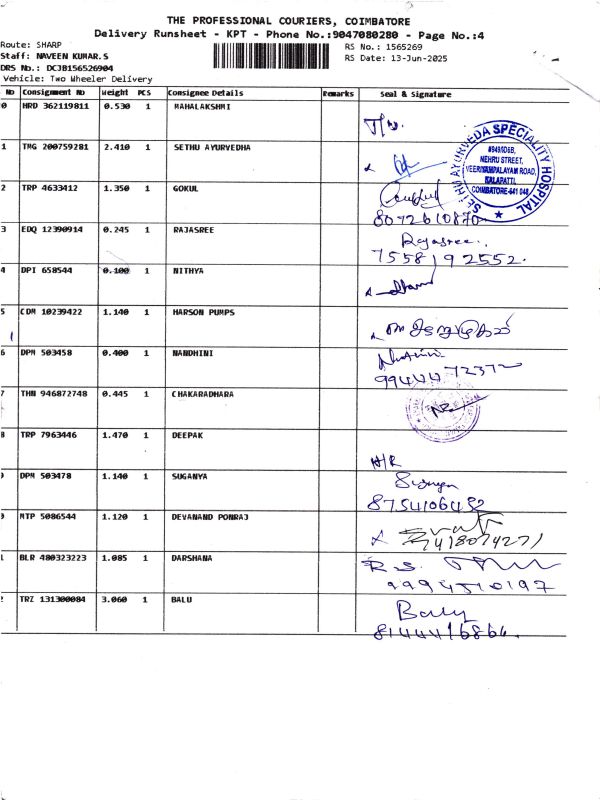 THE PROFESSIONAL COURIERS, COIMBATORE
Delivery Runsheet - KPT - Phone No.:9047080280 - Page No.:4
Route: SHARP
RS No.: 1565269
Staff: NAVEEN KUMAR.S
RS Date: 13-Jun-2025
DRS No.: DCJB156526904
Vehicle: Two Wheeler Delivery
No Consignment No Weight PCS Consignee Details Remarks Seal & Signature
0 HRD 362119811 0.530 1 MAHALAKSHMI
1 TMG 200759281 2.410 1 SETHU AYURVEDHA
SETHU AYURVEDA SPECIALITY HOSPITAL
NEHRU STREET,
VEERIYAMPALAYAM ROAD,
KALAPATTI,
COIMBATORE-641 048
2 TRP 4633412 1.350 1 GOKUL
8072610870
3 EDQ 12390914 0.245 1 RAJASREE
Rajasree
7558192552.
4 DPI 658544 0.100 1 NITHYA
5 CDM 10239422 1.140 1 HARSON PUMPS
6 DPM 503458 0.400 1 NANDHINI
9944472372
7 THN 946872748 0.445 1 CHAKARADHARA
8 TRP 7963446 1.470 1 DEEPAK
H/R
9 DPM 503478 1.140 1 SUGANYA
8754106482
0 MTP 5086544 1.120 1 DEVANAND PONRAJ
7418074271
1 BLR 480323223 1.085 1 DARSHANA
R.S.
9994510197
2 TRZ 131300084 3.060 1 BALU
Balu
8144416866.